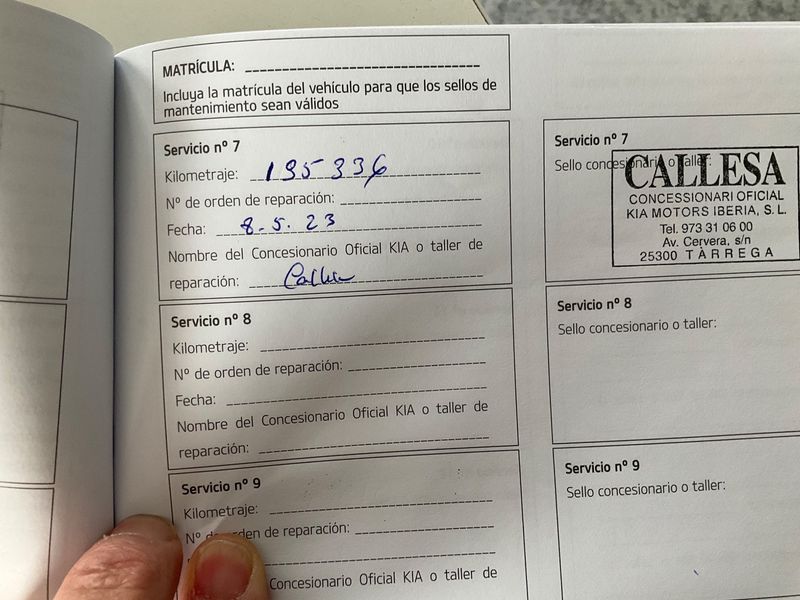 MATRÍCULA:
Incluya la matrícula del vehículo para que los sellos de
mantenimiento sean válidos
Servicio nº 7
Kilometraje: 195336
Nº de orden de reparación:
Fecha: 8-5-23
Nombre del Concesionario Oficial KIA o taller de
reparación:
Servicio nº 7
Sello concesionario o taller:
CALLESA
CONCESSIONARI OFICIAL
KIA MOTORS IBERIA, S. L.
Tel. 973 31 06 00
Av. Cervera, s/n
25300 TÀRREGA
Servicio nº 8
Kilometraje:
Nº de orden de reparación:
Fecha:
Nombre del Concesionario Oficial KIA o taller de
reparación:
Servicio nº 8
Sello concesionario o taller:
Servicio nº 9
Kilometraje:
Nº de orden de reparación:
Concesionario Oficial KIA o taller de
Servicio nº 9
Sello concesionario o taller: